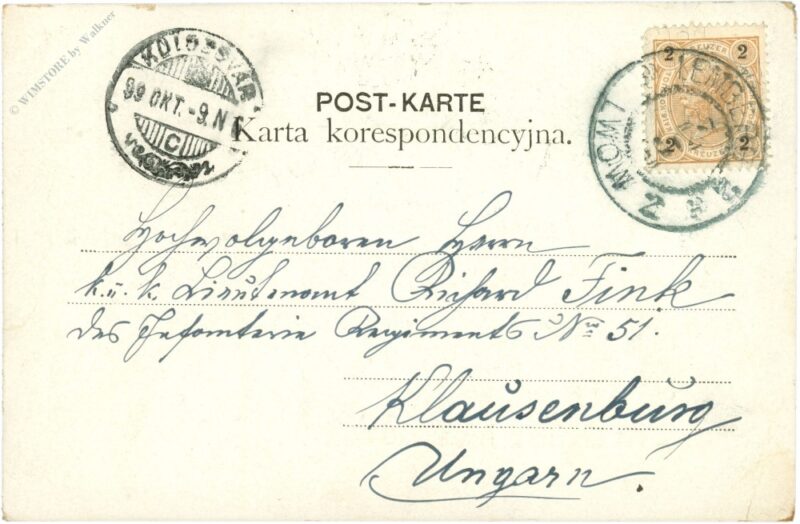 © WIMSTORE by Walkner
KOLOZSVÁR
99 OKT. -9. N
C
POST-KARTE
Karta korespondencyjna.
2 KREUZER 2
2 KREUZER 2
LEMBERG
LWÓW 2
Hochwolgeboren Herrn
k. u. k. Lieutenant Richard Fink
des Infanterie Regiments No 51.
Klausenburg
Ungarn.